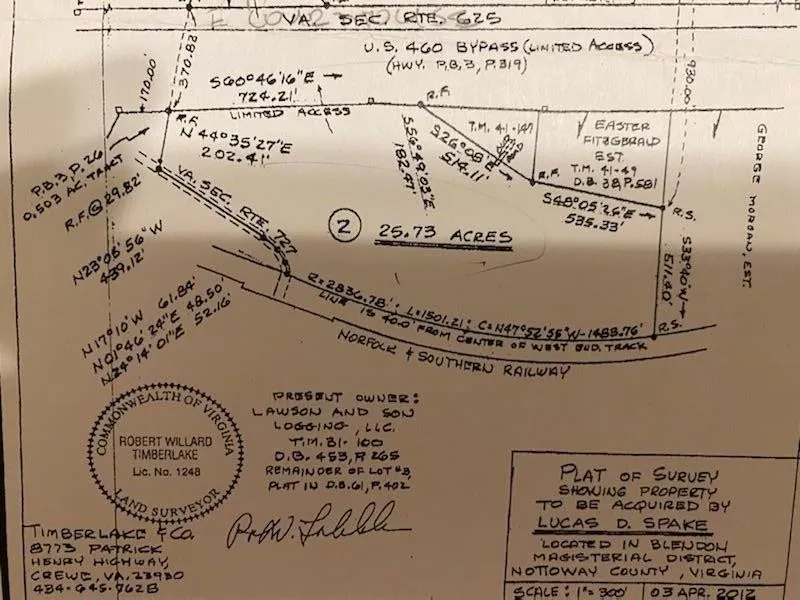 VA. SEC. RTE. 625
U.S. 460 BYPASS (LIMITED ACCESS)
(HWY. P.B.3, P.319)
170.00'
370.82'
930.00'
S60°46'16"E
724.21'
LIMITED ACCESS
R.F.
R.F.
N44°35'27"E
202.41'
P.B.3, P.26
0.503 AC. TRACT
R.F. @ 29.82'
S56°49'02"E
182.47'
S26°08'E
514.11'
T.M. 41-147
R.F.
EASTER
FITZGERALD
EST.
T.M. 41-49
D.B. 38, P.581
S48°05'26"E
535.33'
R.S.
GEORGE MORGAN, EST.
S33°40'W
511.40'
R.S.
VA. SEC. RTE. 727
2
25.73 ACRES
N23°08'56"W
439.12'
N17°10'W 61.84'
N01°46'24"E 48.50'
N24°14'01"E 52.16'
R=2836.78' L=1501.21' C=N47°52'55"W-1483.76'
LINE IS 40.0' FROM CENTER OF WEST BND. TRACK
NORFOLK & SOUTHERN RAILWAY
COMMONWEALTH OF VIRGINIA
ROBERT WILLARD
TIMBERLAKE
Lic. No. 1248
LAND SURVEYOR
PRESENT OWNER:
LAWSON AND SON
LOGGING, LLC.
T.M. 31-100
D.B. 453, P.265
REMAINDER OF LOT #3,
PLAT IN D.B.61, P.402
TIMBERLAKE & CO.
8773 PATRICK
HENRY HIGHWAY,
CREWE, VA. 23930
434-645-7628
PLAT OF SURVEY
SHOWING PROPERTY
TO BE ACQUIRED BY
LUCAS D. SPAKE
LOCATED IN BLENDON
MAGISTERIAL DISTRICT,
NOTTOWAY COUNTY, VIRGINIA
SCALE: 1"=300'
03 APR. 2012